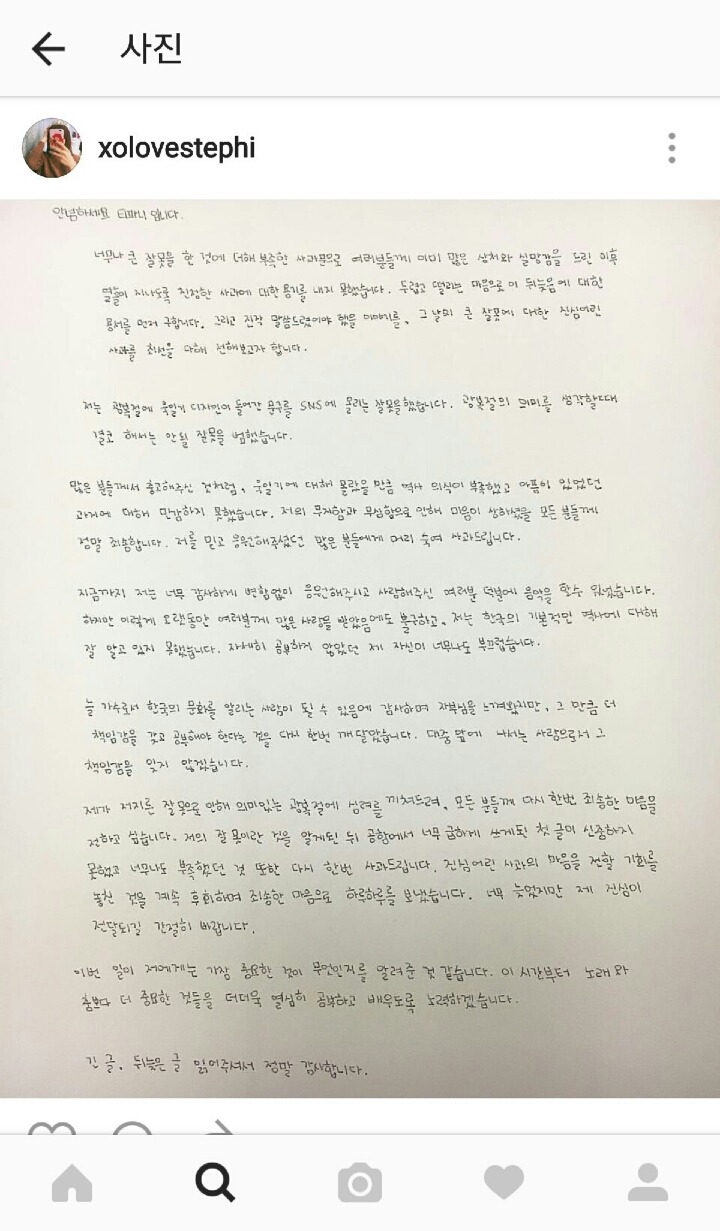 사진
xolovestephi
안녕하세요 티파니 입니다.
너무나 큰 잘못을 한 것에 더해 부족한 사과문으로 여러분들께 이미 많은 상처와 실망감을 드린 이후
열흘이 지나도록 진정한 사과에 대한 용기를 내지 못했습니다. 두렵고 떨리는 마음으로 이 뒤늦음에 대한
용서를 먼저 구합니다. 그리고 진작 말씀드렸어야 했을 이야기를, 그 날의 큰 잘못에 대한 진심어린
사과를 최선을 다해 전해보고자 합니다.
저는 광복절에 욱일기 디자인이 들어간 문구를 SNS에 올리는 잘못을 했습니다. 광복절의 의미를 생각할때
결코 해서는 안될 잘못을 범했습니다.
많은 분들께서 충고해주신 것처럼, 욱일기에 대해 몰랐을 만큼 역사 의식이 부족했고 아픔이 있었던
과거에 대해 민감하지 못했습니다. 저의 무지함과 무심함으로 인해 마음이 상하셨을 모든 분들께
정말 죄송합니다. 저를 믿고 응원해주셨던 많은 분들에게 머리 숙여 사과드립니다.
지금까지 저는 너무 감사하게 변함없이 응원해주시고 사랑해주신 여러분 덕분에 음악을 할수 있었습니다.
하지만 이렇게 오랫동안 여러분께 많은 사랑을 받았음에도 불구하고, 저는 한국의 기본적인 역사에 대해
잘 알고 있지 못했습니다. 자세히 공부하지 않았던 제 자신이 너무나도 부끄럽습니다.
늘 가수로서 한국의 문화를 알리는 사람이 될 수 있음에 감사하며 자부심을 느껴왔지만, 그 만큼 더
책임감을 갖고 공부해야 한다는 것을 다시 한번 깨달았습니다. 대중 앞에 나서는 사람으로서 그
책임감을 잊지 않겠습니다.
제가 저지른 잘못으로 인해 의미있는 광복절에 심려를 끼쳐드려, 모든 분들께 다시 한번 죄송한 마음을
전하고 싶습니다. 저의 잘못이란 것을 알게된 뒤 공항에서 너무 급하게 쓰게된 첫 글이 신중하지
못했고 너무나도 부족했던 것 또한 다시 한번 사과드립니다. 진심어린 사과의 마음을 전할 기회를
놓친 것을 계속 후회하며 죄송한 마음으로 하루하루를 보냈습니다. 너무 늦었지만 제 진심이
전달되길 간절히 바랍니다.
이번 일이 저에게는 가장 중요한 것이 무엇인지를 알려준 것 같습니다. 이 시간부터 노래 와
춤보다 더 중요한 것들을 더더욱 열심히 공부하고 배우도록 노력하겠습니다.
긴 글, 뒤늦은 글 읽어주셔서 정말 감사합니다.